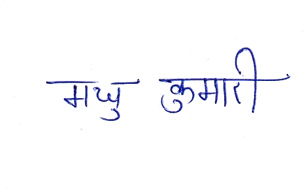 मधु कुमारी